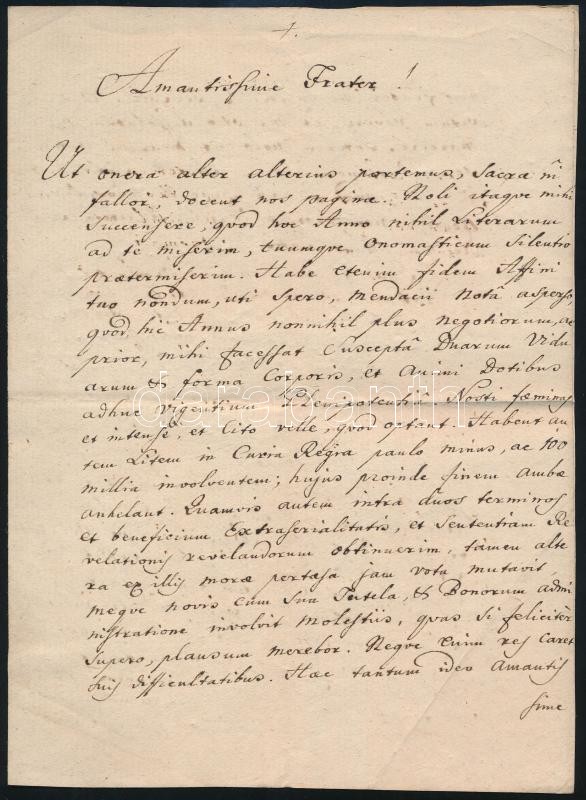 Amantissime Frater!
Ut onera alter alterius portemus, Sacrae ni
fallor, docent nos paginae. Noli itaque mihi
succensere, quod hoc Anno nihil Literarum
ad te miserim, tuumque Onomasticum Silentio
praetermiserim. Habe etenim fidem Affini
tuo nondum, uti spero, mendacii notâ asperso,
quod hic Annus nonnihil plus negotiorum, ac
prior, mihi facessat Susceptâ Duarum Vidu
arum & forma Corporis, et Animi Dotibus
adhuc vigentium Plenipotentiâ. Nosti foeminas
et intensè, et Cito velle, quod optant. Habent au
tem Litem in Curia Regia paulo minus, ac 100
millia involventem; hujus proinde finem Ambae
anhelant. Quamvis autem intra duos terminos
et beneficium Extraserialitatis, et Sententiam Re
velationis revelandorum obtinuerim, tamen alte
ra ex illis morae pertaesa jam vota mutavit,
meque novis cum Sua Tutela, & Bonorum admi
nistratione involvit molestiis, quas si feliciter
supero, plausum merebor. Neque enim res Caret
suis difficultatibus. Haec tantum ideo Amantis
sime
darabanth